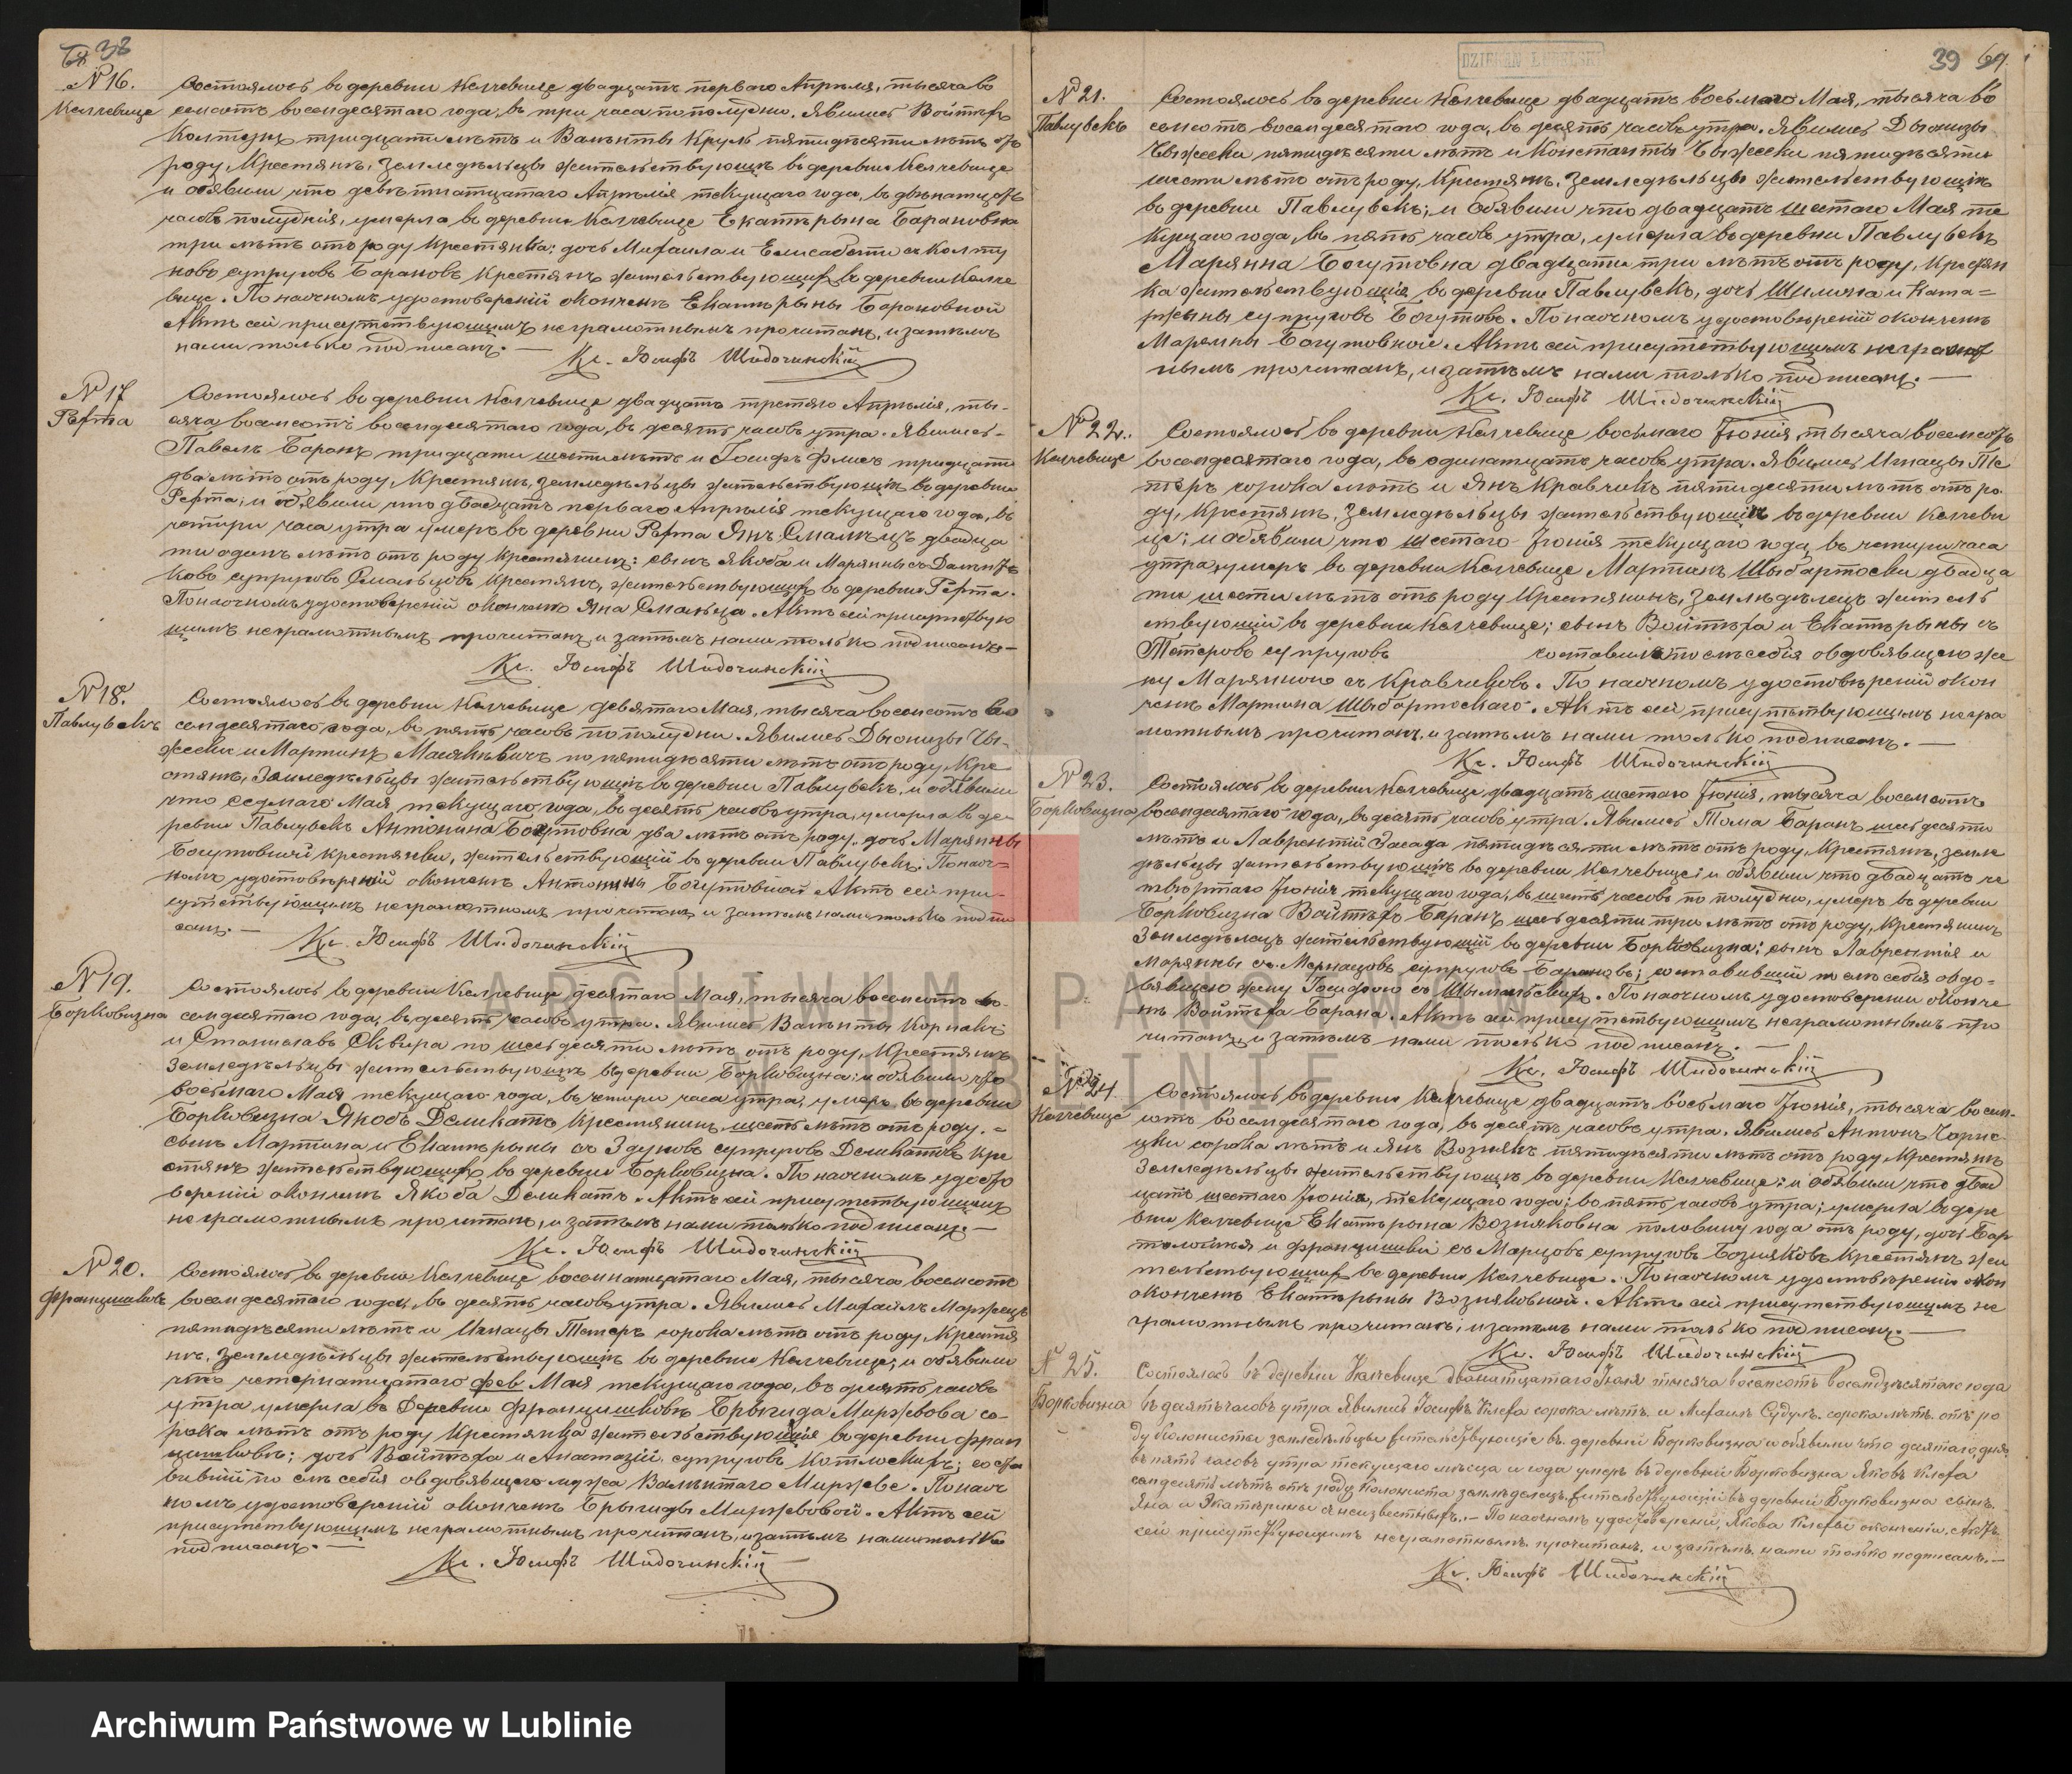 38
№ 16.
Келчевице
Состоялось въ деревни Келчевице двадцать перваго Апреля, тысяча во
семсотъ восемдесятаго года, въ три часа пополудни. Явились Войтѣхъ
тридцати лѣтъ и Валѣнты Круль пятидѣсяти лѣтъ отъ
роду, Крестяне, Земледѣльцы жительствующіе въ деревни Келчевице
и обявили что девятнатцатаго Апрѣля текущаго года, въ двѣнатцать
часовъ полуднія, умерла въ деревни Келчевице Екатѣрына Барановна
три лѣтъ отъ роду Крестянка; дочь Михаила и Елисабети съ Колту
новъ супруговъ Барановъ Крестянъ жительствующихъ въ деревни Келче
вице. По наочномъ удостовереній окончень Екатѣрыны Барановной
Актъ сей присутствующимъ неграмотнымъ прочитанъ, и затѣмъ
нами только подписанъ. —
Кс. Юсифъ Шидочинскій
№ 17
Рехта
Состоялось въ деревни Келчевице двадцать третяго Апрѣлія, ты-
сяча восемсотъ восемдесятаго года, въ десять часовъ утра. Явились-
Павелъ Баранъ тридцати шести лѣтъ и Іосифъ Флисъ тридцати
два лѣтъ отъ роду, Крестяне, земледѣльцы жительствующіе въ деревни
Рехта; и обявили что двадцать перваго Апрѣлія текущаго года, въ
четыри часа утра умеръ въ деревни Рехта Янъ Смалѣцъ двадца
ти одинъ лѣтъ отъ роду Крестянинъ: сынъ Якоба и Марянны съ
ковъ супруговъ Смальцовъ Крестянъ, жительствующихъ въ деревни Рехта.
По наочномъ удостовереній окончено Яна Смальца. Актъ сей присутствую
щимъ неграмотнымъ прочитанъ, и затѣмъ нами только подписанъ. —
Кс. Юсифъ Шидочинскій
№ 18.
Павлувекъ
Состоялось въ деревни Келчевице девятаго Мая, тысяча восемсотъ во
семдесятаго года, въ пять часовъ по полудни. Явились Дыонизы Чы-
жески и Мартинъ по пятидѣсяти лѣтъ отъ роду, Кре
стяне, Земледѣльцы жительствующіе въ деревни Павлувекъ, и обявили
что седмаго Мая, текущаго года, въ десять часовъ утра, умерла въ де-
ревни Павлувекъ Антонина Богутовна два лѣтъ отъ роду, дочь Марянны
Богутовной Крестянки, жительствующій въ деревни Павлувекъ; По наоч-
номъ удостовѣреній окончень Антонины Богутовной Актъ сей при-
сутствующимъ неграмотномъ прочитанъ и затѣмъ нами только подпи
санъ. —
Кс. Юсифъ Шидочинскій
№ 19.
Борковизна
Состоялось въ деревни Келчевице десятаго Мая, тысяча восемсотъ во-
семдесятаго года; въ десять часовъ утра. Явились Валѣнты
и Станиславъ Сквира по шесьдесяти лѣтъ отъ роду, Крестяне
Земледѣльцы жительствующіе въ деревни Борковизна; и обявили что
восьмаго Мая текущаго года, въ четыри часа утра, умеръ въ деревни
Борковизна Якобъ Деликатъ Крестянинъ, шесть лѣтъ отъ роду. =
сынъ Мартина и Екатѣрыны съ Здуновъ супруговъ Деликатовъ Кре
стянъ жительствующихъ въ деревни Борковизна. По наочномъ удосто
вереній окончень Якоба Деликатъ. Актъ сей присутствующимъ
неграмотнымъ прочитанъ, и затѣмъ нами только подписанъ. —
Кс. Юсифъ Шидочинскій
№ 20.
Францишковъ
Состоялось въ деревни Келчевице восемнатцатаго Мая, тысяча восемсотъ
восемдесятаго года, въ десять часовъ утра. Явились Михаилъ
пятидѣсяти лѣтъ и Игнацы Тетеръ сорока лѣтъ отъ роду, Крестя
не, Земледѣльцы жительствующіе въ деревни Келчевице; и обявили
что четернатцатаго фев Мая текущаго года, въ десять часовъ
утра умерла въ деревни Францишковъ Брыгида Миржвова со-
рока лѣтъ отъ роду Крестянка жительствующія въ деревни Фран
цишковъ; дочь Войтѣха и Анастазій супруговъ ; оста
вивший по смъ себія овдовявшего мужа Валѣнтаго Миржве. По наоч
номъ удостовереній окончень Брыгиды Миржвовой. Актъ сей
присутствующимъ неграмотнымъ прочитанъ, и затѣмъ нами только
подписанъ. —
Кс. Юсифъ Шидочинскій
DZIEKAN LUBELSKI
39
69.
№ 21.
Павлувекъ
Состоялось въ деревни Келчевице двадцать восьмаго Мая, тысяча во
семсотъ восемдесятаго года, въ десять часовъ утра. Явились Дыонизы
Чыжески пятидѣсяти лѣтъ и Константы Чыжески пятидѣсяти
шести лѣтъ отъ роду, Крестяне, Земледѣльцы жительствующіе
въ деревни Павлувекъ; и обявили что двадцать шестаго Мая те
кущаго года, въ пять часовъ утра, умерла въ деревни Павлувекъ
Марянна Богутовна двадцати три лѣтъ отъ роду, Крестян
ка жительствующія въ деревни Павлувекъ, дочь Шимона и Ката=
ржыны супруговъ Богутовъ. По наочномъ удостовѣреній окончень
Марянны Богутовной. Актъ сей присутствующимъ неграмот
нымъ прочитанъ, и затѣмъ нами только подписанъ. —
Кс. Юсифъ Шидочинскій
№ 22.
Келчевице
Состоялось въ деревни Келчевице восьмаго Іюнія, тысяча восемсотъ
восемдесятаго года, въ одинатцать часовъ утра. Явились Игнацы Те
теръ сорока лѣтъ и Янъ Кравчикъ пятидесяти лѣтъ отъ ро-
ду, Крестяне, Земледѣльцы жительствующіе въ деревни Келчеви
це; и обявили что шестаго Іюнія текущаго года, въ четыри часа
утра, умеръ въ деревни Келчевице Мартинъ Шыбартоски двадца
ти шести лѣтъ отъ роду Крестянинъ, Земледѣлецъ житель
ствующій въ деревни Келчевице; сынъ Войтѣха и Екатѣрыны съ
Тетеровъ супруговъ оставилъ по смъ себія овдовявшею же
ну Марянною съ Кравчиковъ. По наочномъ удостовѣреній окон
чень Мартина Шыбартоскаго. Актъ сей присутствующимъ негра
мотнымъ прочитанъ, и затѣмъ нами только подписанъ. —
Кс. Юсифъ Шидочинскій
№ 23.
Борковизна
Состоялось въ деревни Келчевице, двадцать шестаго Іюнія, тысяча восемсотъ
восемдесятаго года, въ десять часовъ утра. Явились Тома Баранъ шесьдесяти
лѣтъ и Лаврентій Засада пятидѣсяти лѣтъ отъ роду, Крестяне, земле
дѣльцы жительствующіе въ деревни Келчевице; и обявили что двадцать че
твѣртаго Іюнія текущаго года, въ шесть часовъ по полудни, умеръ въ деревни
Борковизна Войтѣхъ Баранъ шесьдесяти три лѣтъ отъ роду, Крестянинъ
Земледѣлецъ жительствующій въ деревни Борковизна; сынъ Лаврентія и
Марянны съ супруговъ Барановъ; оставивший по смъ себія овдо-
вявшею жену съ . По наочномъ удостоверени оконче
нь Войтѣха Барана. Актъ сей присутствующимъ неграмотнымъ про
читанъ, и затѣмъ нами только подписанъ. —
Кс. Юсифъ Шидочинскій
№ 24
Келчевице
Состоялось въ деревни Келчевице двадцать восьмаго Іюнія, тысяча восем-
сотъ восемдесятаго года, въ десять часовъ утра. Явились Антонъ Чарне
цки сорока лѣтъ и Янъ Вознякъ пятидѣсяти лѣтъ отъ роду Крестяне
Земледѣльцы жительствующіе въ деревни Келчевице; и обявили что двад
цать шестаго Іюнія, текущаго года; въ пять часовъ утра; умерла въ дере
вни Келчевице Екатѣрына Возняковна половину года отъ роду, дочь Бар
толомея и Францишки съ Марцовъ супруговъ Возняковъ Крестянъ жи
тельствующихъ въ деревни Келчевице. По наочномъ удостовѣрени окон
окончень Екатѣрыны Возняковной. Актъ сей присутствующимъ не
грамотнымъ прочитанъ, и затѣмъ нами только подписанъ. —
Кс. Юсифъ Шидочинскій
№ 25.
Борковизна
Состоялось въ деревни Келчевице двѣнатцатаго Іюля тысяча восемсотъ восемдѣсятаго года
въ десять часовъ утра Явились Іосифъ Клефа сорока лѣтъ и Михаилъ сорока лѣтъ отъ ро
ду Колонисты земледѣльцы жительствующіе въ деревни Борковизна и обявили что десятаго дня
въ пять часовъ утра текущаго мѣсяца и года умеръ въ деревни Борковизна Яковъ Клефа
семдесятъ лѣтъ отъ роду Колониста земледѣлецъ жительствующій въ деревни Борковизна сынъ
Яна и Екатѣрины съ неизвестныхъ. — По наочномъ удостоверени, Якова Клефы окончени, Актъ
сей присутствующимъ неграмотнымъ прочитанъ, и затѣмъ нами только подписанъ. —
Кс. Юсифъ Шидочинскій
ARCHIWUM PAŃSTWOWE
W LUBLINIE
Archiwum Państwowe w Lublinie